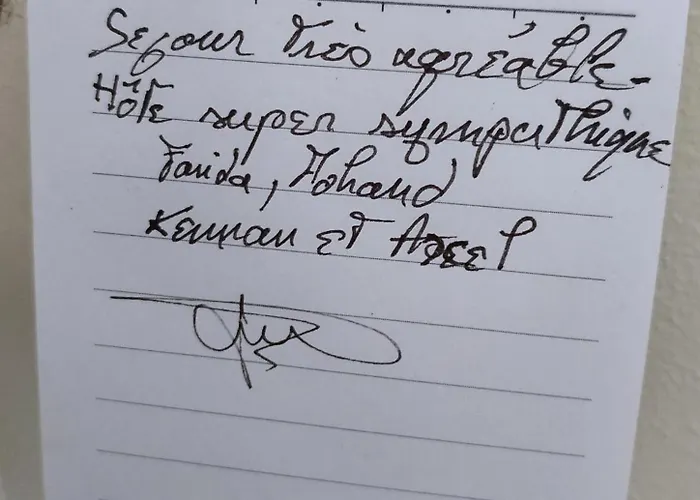 Sejour très agréable-
Hôte super sympathique
Farida, Mohand
Kennan et